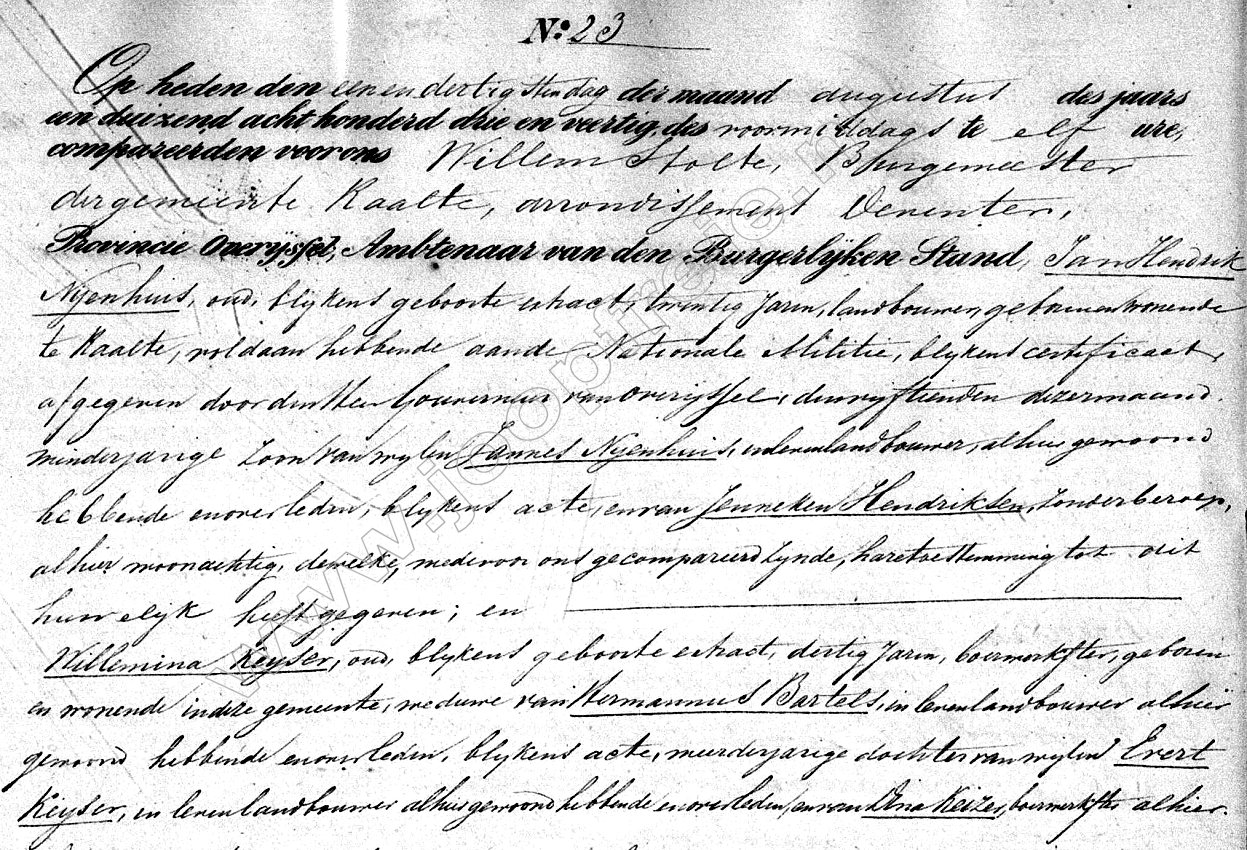 No: 23
Op heden den eenendertigsten dag der maand augustus des jaars
een duizend acht honderd drie en veertig, des voormiddags te elf ure,
compareerden voor ons Willem Stolte, Burgemeester
der gemeente Raalte, arrondissement Deventer,
Provincie Overijssel, Ambtenaar van den Burgerlijken Stand, Jan Hendrik
Nijenhuis, oud, blijkens geboorte extract, twintig jaren, landbouwer, geboren en wonende
te Raalte, voldaan hebbende aan de Nationale Militie, blijkens certificaat,
afgegeven door den Heer Gouverneur van Overijssel, den vijftienden dezer maand.
minderjarige zoon van wijlen Jannes Nijenhuis, in leven landbouwer, alhier gewoond
hebbende en overleden, blijkens acte, en van Jenneken Hendriksen, zonder beroep,
alhier woonachtig, dewelke, mede voor ons gecompareerd zijnde, hare toestemming tot dit
huwelijk heeft gegeven; en
Willemina Keyser, oud, blijkens geboorte extract, dertig jaren, boerwerkster, geboren
en wonende in deze gemeente, weduwe van Hermannus Bartels, in leven landbouwer alhier
gewoond hebbende en overleden, blijkens acte, meerderjarige dochter van wijlen Evert
Keyser, in leven landbouwer alhier gewoond hebbende en overleden, en van Dina Keizer, boerwerkster alhier
www.jooptreie.n